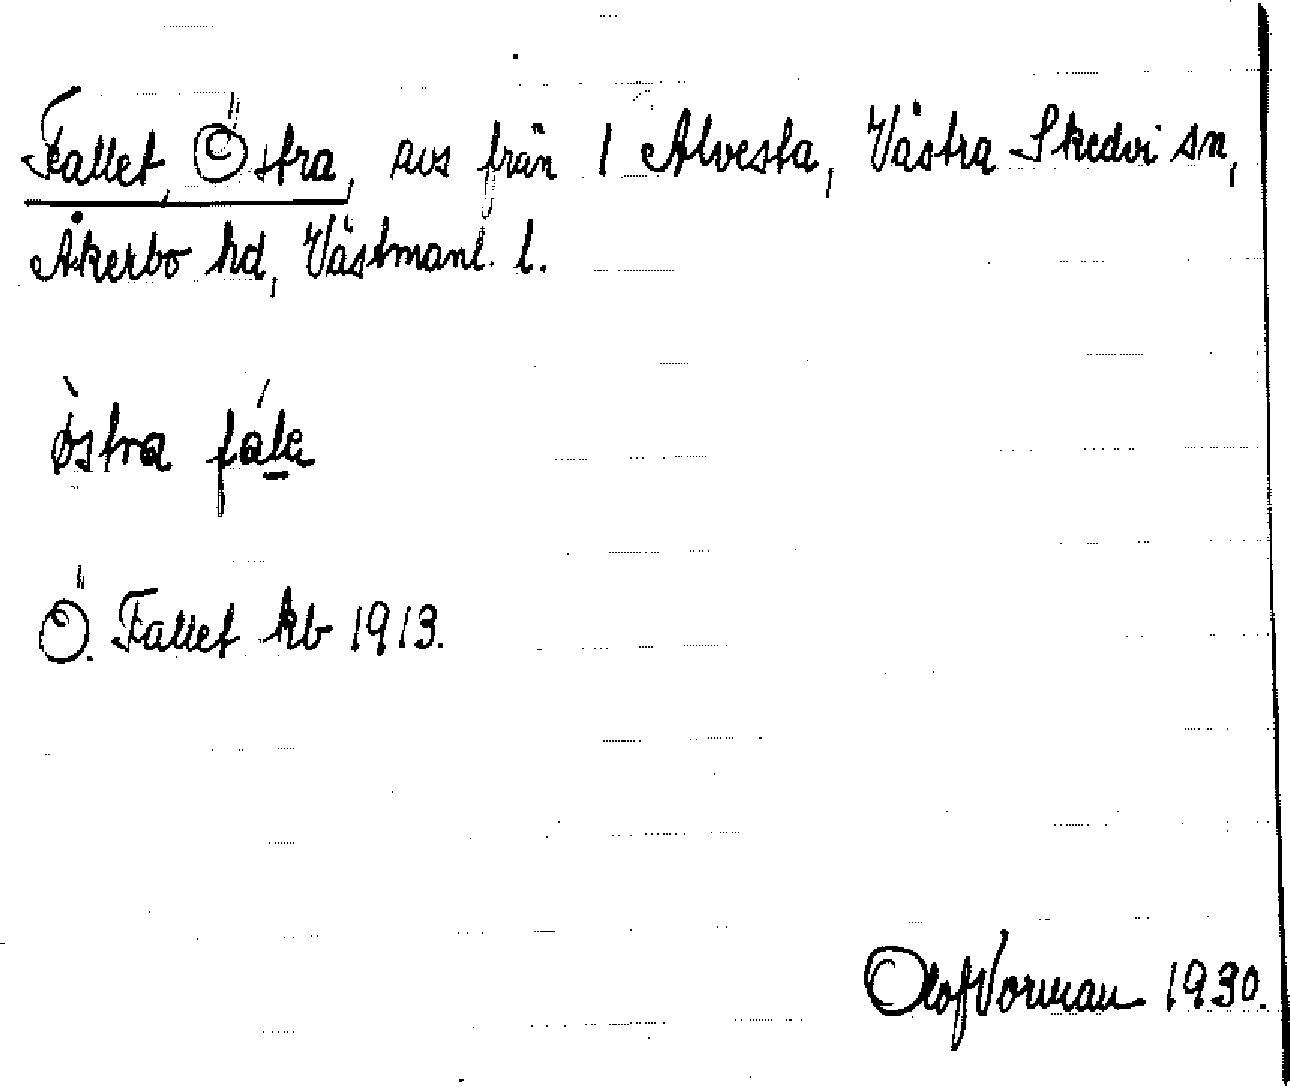 Fallet, Östra, avs från 1 Alvesta, Västra Skedvi sn,
Åkerbo hd, Västmanl. l.
östra
Ö. Fallet kb 1913.
Olof Norman 1930.